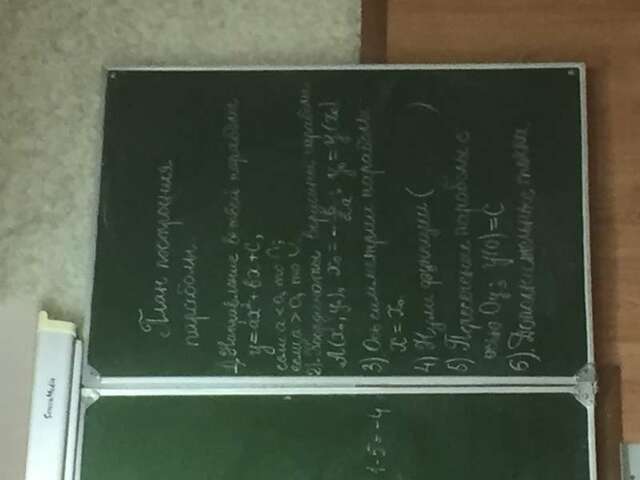 ScreenMedia
План построения
параболы.
1). Направление ветвей параболы
y = ax² + bx + c,
если a < 0, то ∩;
если a > 0, то ∪
2). Координаты вершины параболы
A(x₀, y₀), x₀ = -b/2a; y₀ = y(x₀)
1-5=-4
3) Ось симметрии параболы
x = x₀
4) Нули функции ( )
5) Пересечение параболы с
осью Oy; y(0) = C
6). Дополнительные точки